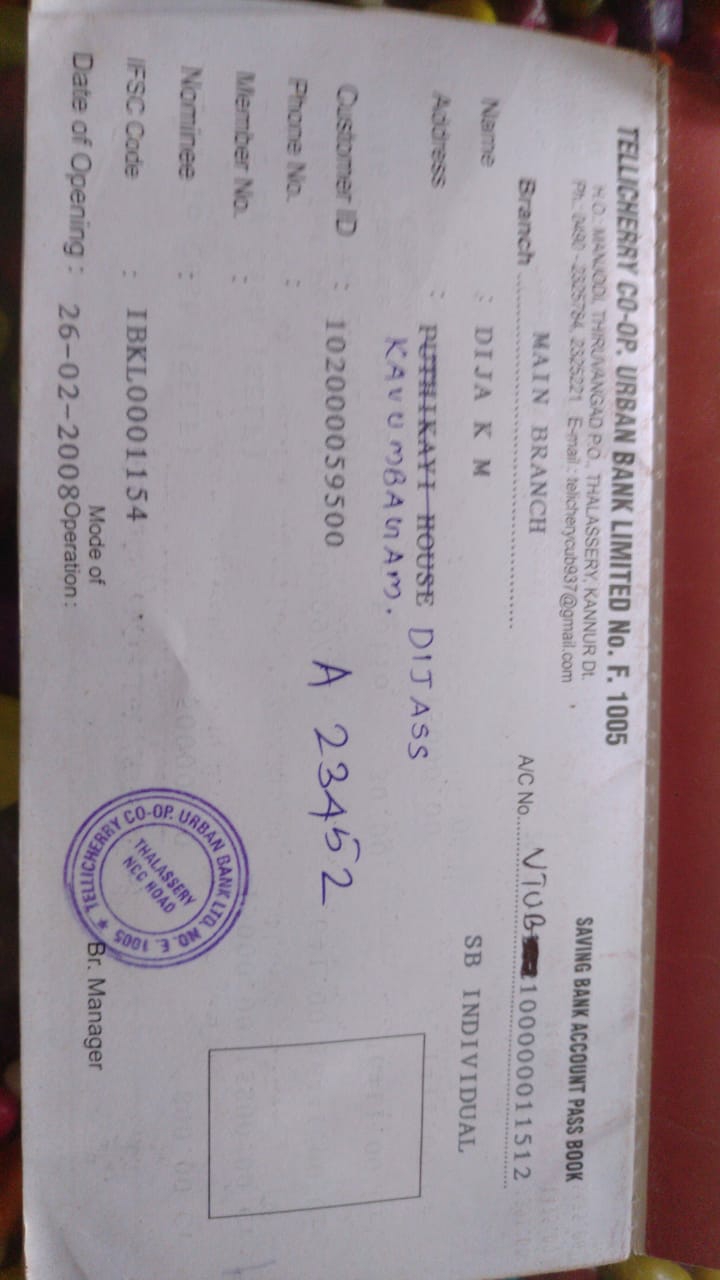 TELLICHERRY CO-OP. URBAN BANK LIMITED No. F. 1005
H.O.: MANJODI, THIRUVANGAD P.O., THALASSERY, KANNUR Dt.
Ph: 0490 - 2325784, 2325221 E-mail: tellicherycub937@gmail.com
SAVING BANK ACCOUNT PASS BOOK
Branch MAIN BRANCH A/C No. 100000011512
Name : DIJA K M SB INDIVIDUAL
Address : PUTHIKAYI HOUSE DIJASS
KAVUMBAGAM.
Customer ID : 102000059500 A 23452
Phone No. :
Member No. :
Nominee :
IFSC Code : IBKL0001154
Date of Opening : 26-02-2008 Mode of Operation :
Br. Manager
TELLICHERRY CO-OP. URBAN BANK LTD. NO. F. 1005
THALASSERY
NCC ROAD